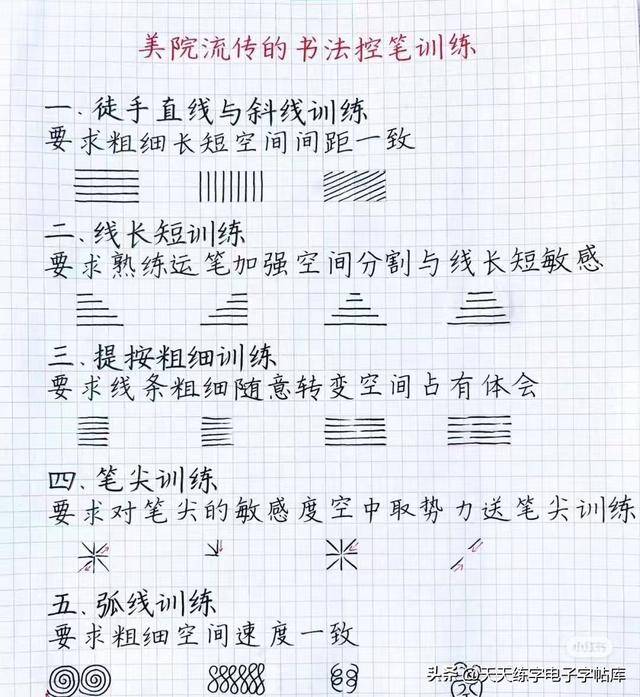 美院流传的书法控笔训练
一.徒手直线与斜线训练
要求粗细长短空间间距一致
二.线长短训练
要求熟练运笔加强空间分割与线长短敏感
三.提按粗细训练
要求线条粗细随意转变空间占有体会
四.笔尖训练
要求对笔尖的敏感度空中取势力送笔尖训练
五.弧线训练
要求粗细空间速度一致
小红书
头条@天天练字电子字帖库